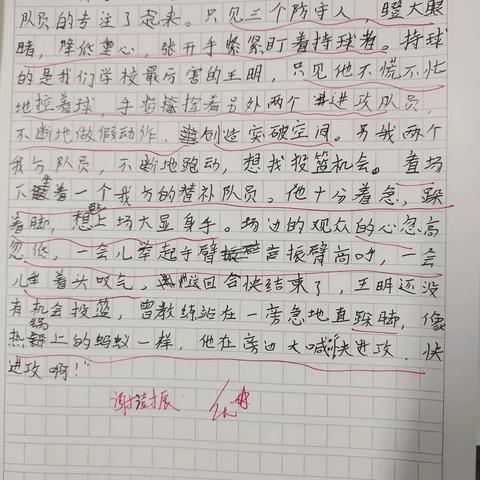 队员的专注了起来。只见三个防守人，瞪大眼
睛，降低重心，张开手紧紧盯着持球者。持球
的是我们学校最厉害的王明，只见他不慌不忙
地拉着球，手指挥着另外两个进攻队员，
不断地做假动作，创造突破空间。另我两个
我方队员，不断地跑动，想找投篮机会。看场
下坐着一个我方的替补队员。他十分着急，跺
着脚，想上场大显身手。场边的观众的心忽高
忽低，一会儿举起手臂振臂高呼，一会
儿垂着头叹气，这回合快结束了，王明还没
有机会投篮，曾教练站在一旁急地直跺脚，像
热锅上的蚂蚁一样，他在旁边大喊快进攻，快
进攻啊！"